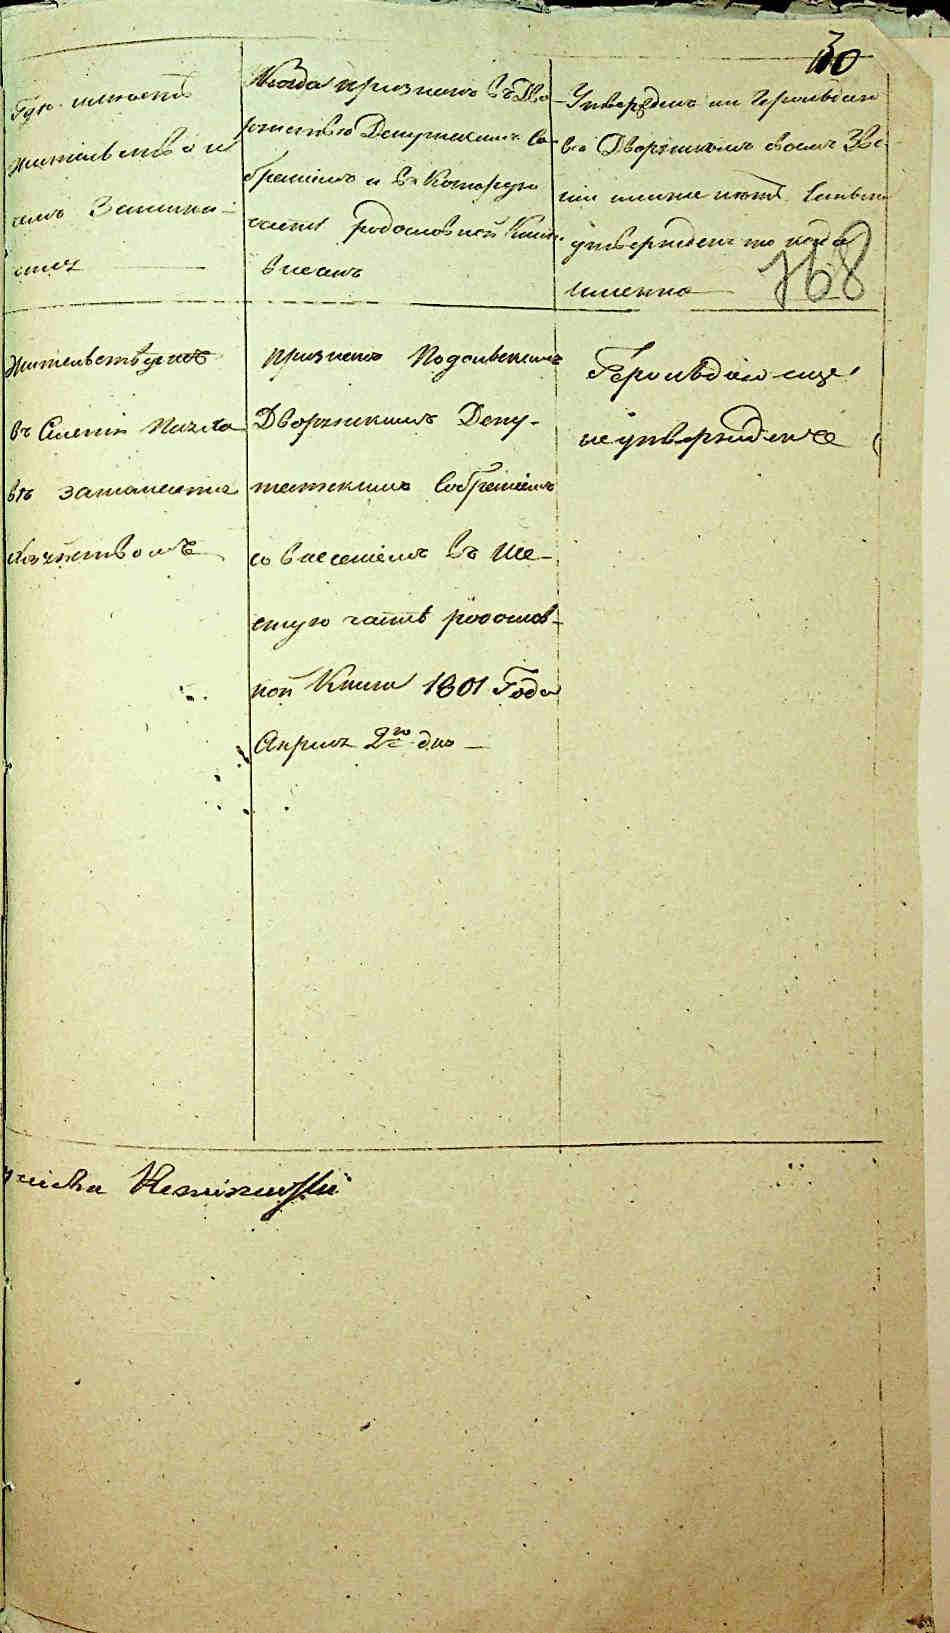 30
Где имеетъ
жительство и
чемъ Занима-
ется
Когда признанъ въ Дво-
рянство Депутатскимъ Со-
браніемъ и въ Которую
часть родословной Книги
вписанъ
Утвержденъ ли Герольдіею
въ Дворянскомъ своемъ Зва-
ніи или же нетъ Ежели
утвержденъ то когда
именно
768
Жительствуетъ
въ Селеніи
въ занимается
Признанъ Подольскимъ
Дворянскимъ Депу-
татскимъ Собраніемъ
со внесеніемъ въ Ше-
стую часть родослов-
ной Книги 1801 Года
Апреля 2го дня
Герольдіею еще
не утвержденъ